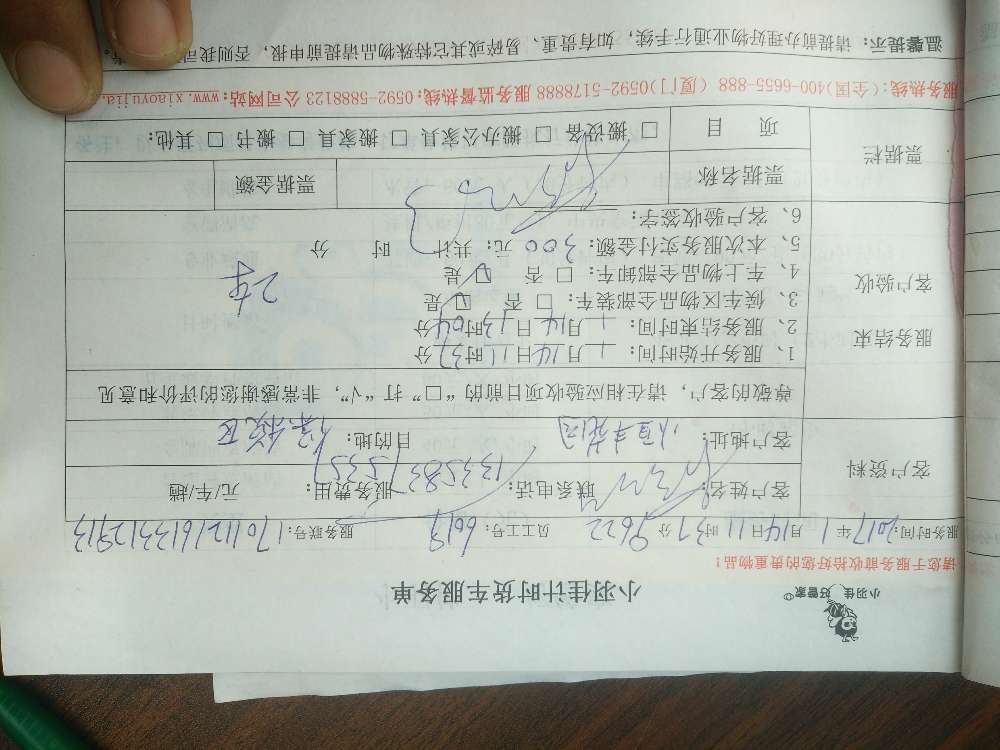 小羽佳 好管家
小羽佳计时货车服务单
请您于服务前收拾好您的贵重物品!
服务时间: 2017年 1 月14日 11 时 37 分 9622 员工工号: 6619 服务联号: 170112161331 2913
客户资料
客户姓名: 联系电话: 13358375357 服务费用: 元/车/趟
客户地址: 恒丰花园 目的地: 杏林校区
尊敬的客户，请在相应验收项目前的“□”打“√”，非常感谢您的评价和意见
服务结束
客户验收
1、服务开始时间: 1月14日11时37分
2、服务结束时间: 1月14日13时04分
3、候车区物品全部装车: □ 否 ☑ 是
4、车上物品全部卸车: □ 否 ☑ 是
2车
5、本次服务实付金额: 300 元; 共计 时 分
6、客户验收签字:
票据栏
票据名称 票据金额
项 目 □ 搬设备 □ 搬办公家具 □ 搬家具 □ 搬书 □ 其他:
服务热线:(全国)400-6655-888 (厦门)0592-5178888 服务监督热线:0592-5888123 公司网站:www.xiaoyujia.
温馨提示: 请提前办理好物业通行手续, 如有贵重、易碎或其它特殊物品请提前申报, 否则我司